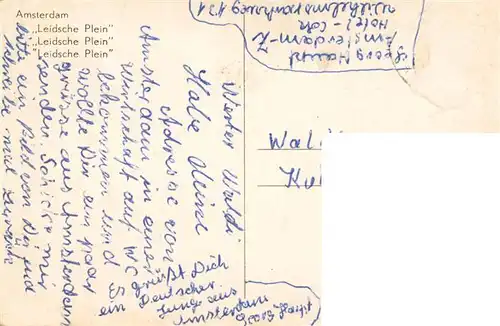 Amsterdam
„Leidsche Plein"
„Leidsche Plein"
„Leidsche Plein"
Werter Waldi
Habe Deine
Adresse von
Amsterdam in einer
Wirtschaft auf WC
bekommen und
wollte Dir ein paar
grüsse aus Amsterdam
senden Schicke mir
bitte ein Bild von Dir und
schreibe mal zurück
Es grüßt Dich
ein Deutscher
Junge aus
Amsterdam
Georg
Georg
Hotel-
Amsterdam-Z
Wal